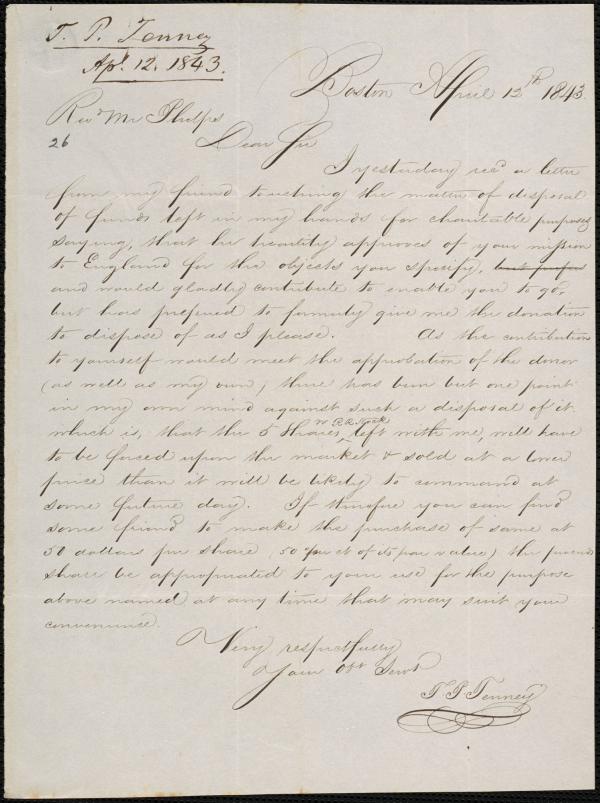 T. P. Tenney
Apl. 12. 1843.
Boston April 12th 1843.
Revd Mr Phelps
26
Dear Sir
I yesterday recd a letter
from my friend touching the matter of disposal
of funds left in my hands for charitable purposes
saying, that he heartily approves of your mission
to England for the objects you specify, but prefers
and would gladly contribute to enable you to go,
but has prefered to formaly give me the donation
to dispose of as I please. As the contribution
to yourself would meet the approbation of the donor
(as well as my own) there has been but one point
in my own mind against such a disposal of it
which is, that the 5 Shares W. R.R. Stock left with me, will have
to be forced upon the market & sold at a lower
price than it will be likely to command at
some future day. If therefore you can find
some friend to make the purchase of same at
50 dollars per share (50 per ct of its par value) the proceeds
shall be appropriated to your use for the purpose
above named at any time that may suit your
convenience.
Very respectfully
Your Obt Servt
T. P. Tenney